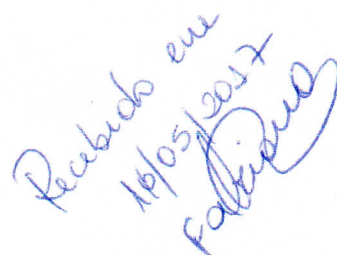 Recebido em
16/05/2017
Fabiana